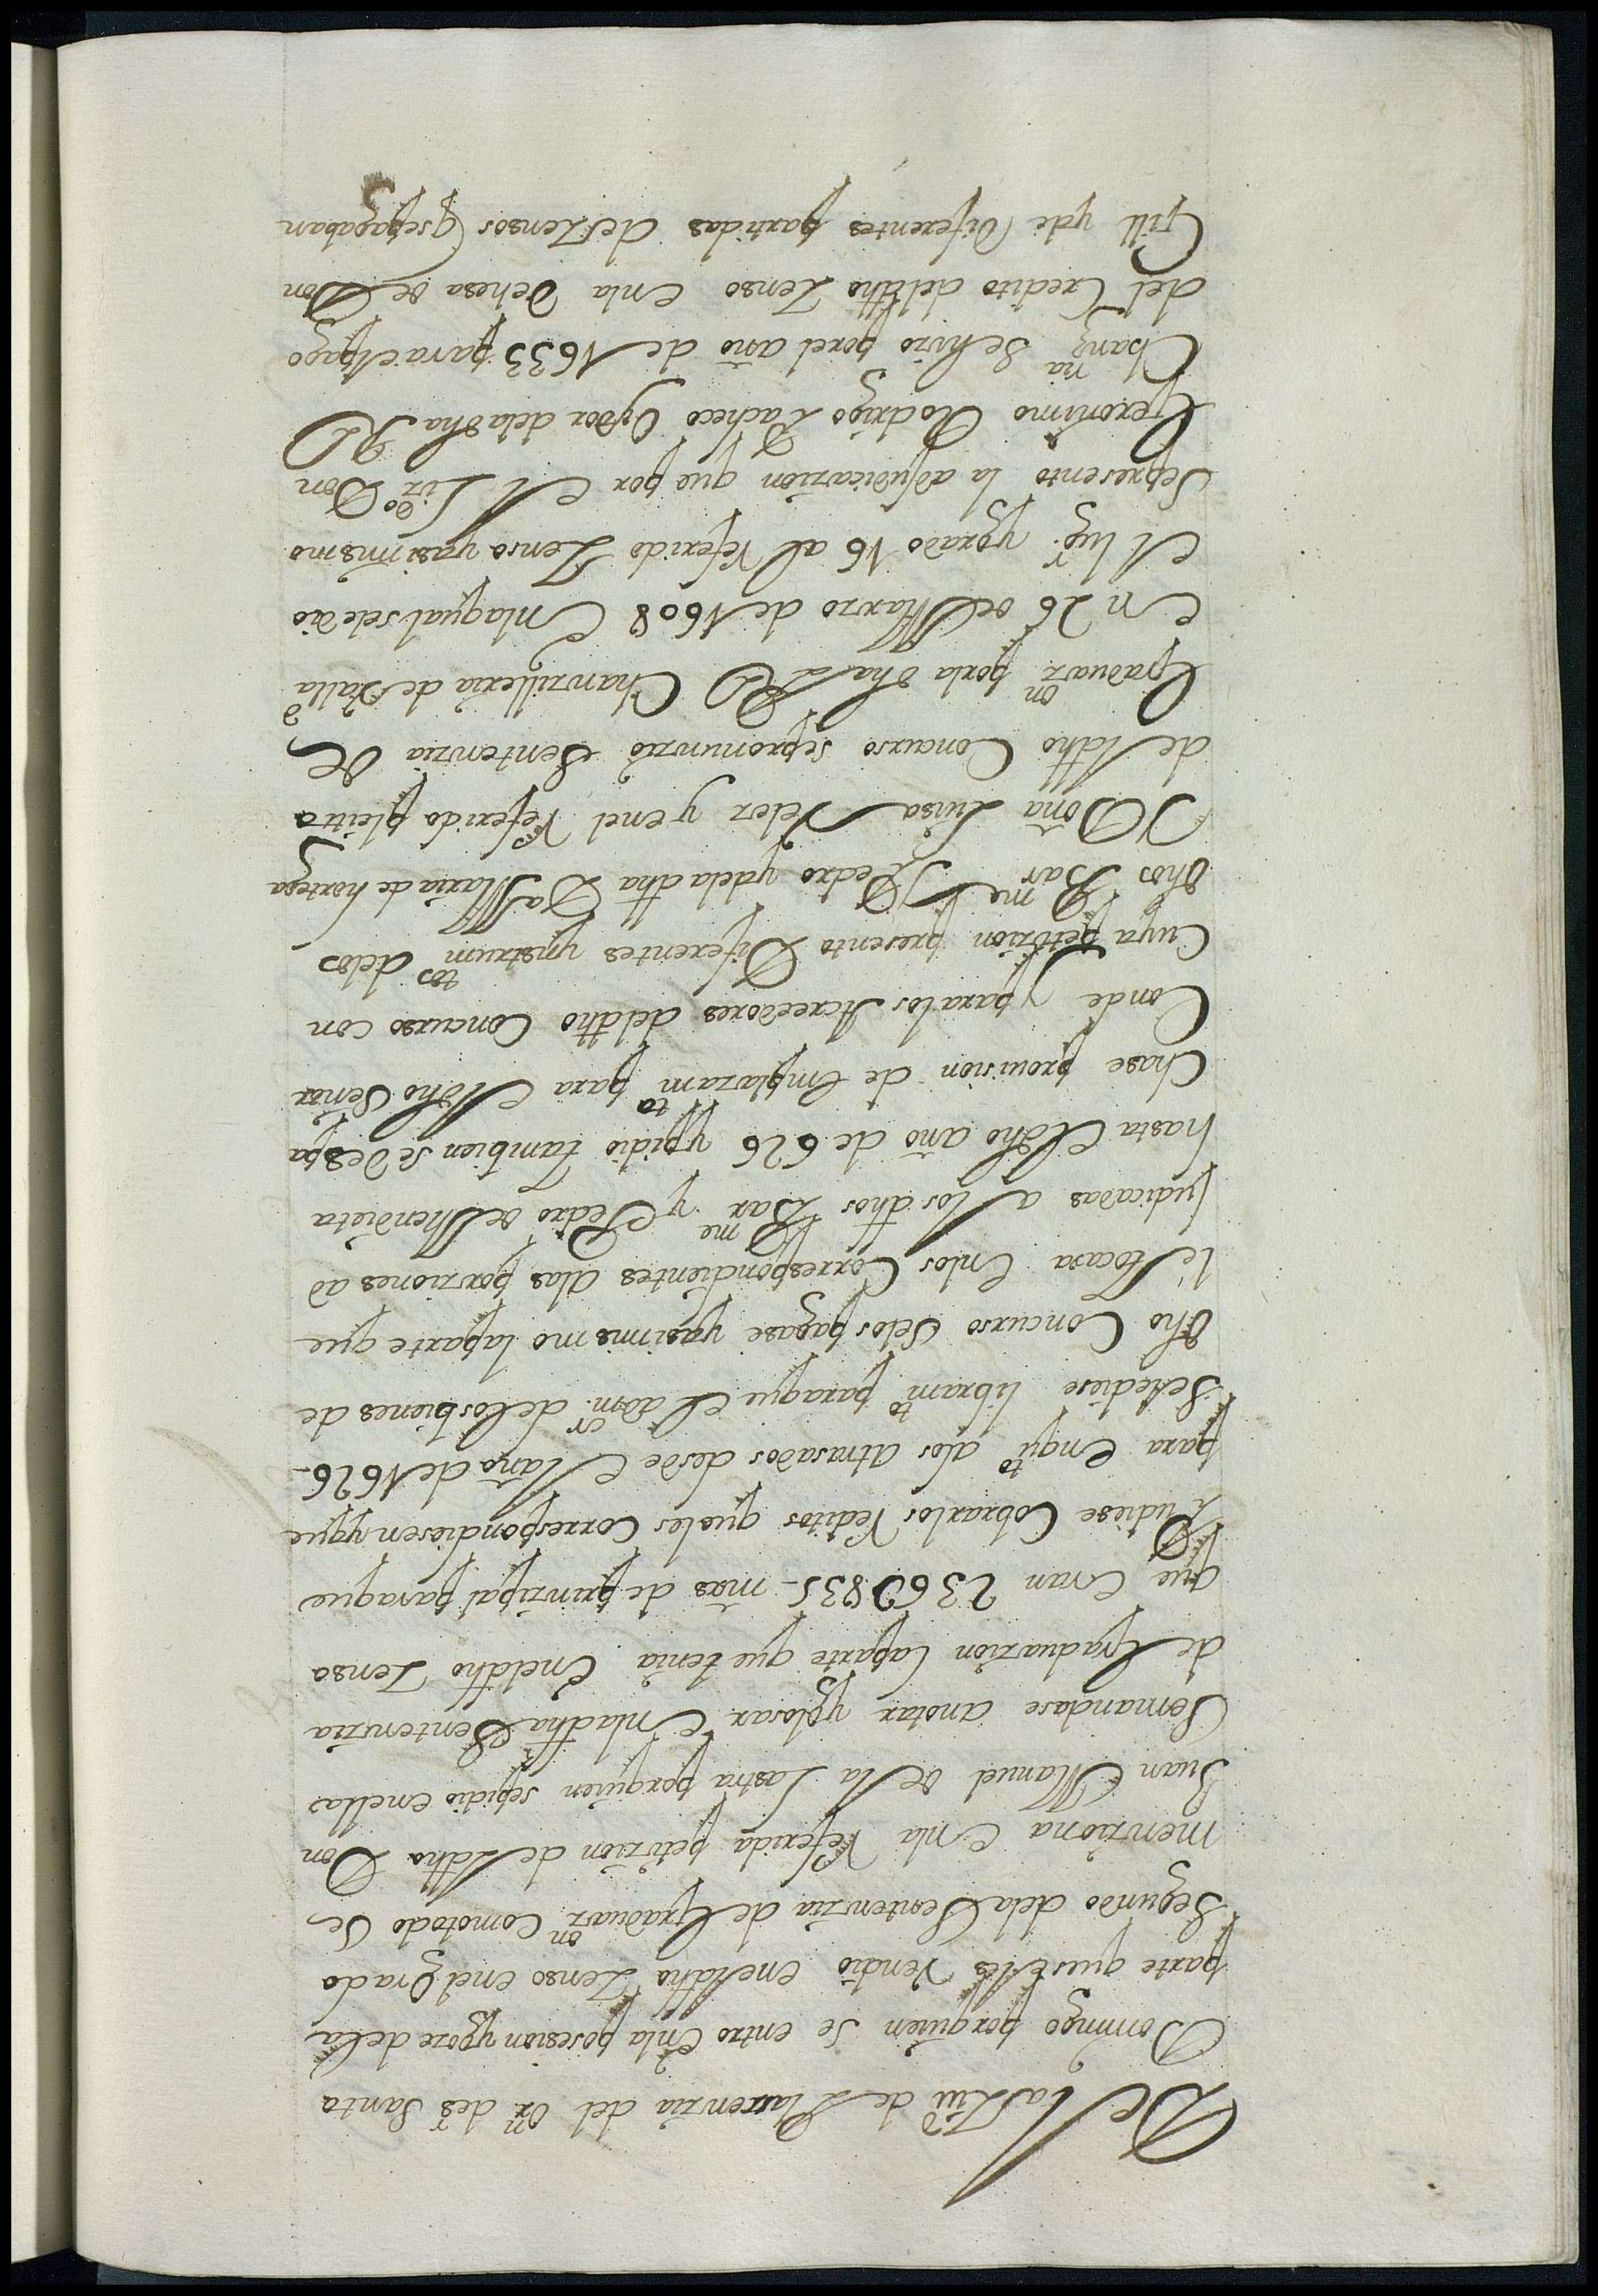 De la Ziu.d de Plazenzia del or.n de s.r Santo
Domingo por quien se entro enla posesion ygoze dela
parte que este les Vendio eneldho Zenso enel grado
Segundo dela Sentenzia de Graduaz.on Comotodo se
menziona enla Referida petizion deldho Don
Juan Manuel dela Lastra por quien sepidio enellas
Semandase anotar yglosar enladha Sentenzia
de Graduazion laparte que tenia eneldho Zenso
que eran 236U835 mrs de prinzipal paraque
Pudiese Cobrarlos Reditos queles Correspondiesen yque
para enqu.to alos atrasados desde el año de 1626-
Selediese libram.to paraque el adm.or delos bienes de
dho Concurso selos pagase yasimismo laparte que
le tocara enlos Correspondientes alas porziones ad
judicadas a los dhos Bar.me y Pedro de Mendieta
hasta eldho año de 626 ypidio tambien se Despa
chase prouision de emplazam.to para eldho Señor
Conde yparalos Acreedores deldho Concurso con
Cuya petizion presento Diferentes ynstrum.tos delos
dhos Bar.me Pedro ydela dha D.a Maria de hortega
Doña Luisa Velez y enel Referido pleitto
deldho Concurso sepronunzio Sentenzia de
Graduaz.on porla dha R.l Chanzilleria de Valla.d
en 26 de Marzo de 1608 enlaqual sele dio
el lug.r ygrado 16 al Referido Zenso yasimismo
Sepresento la adjudicazion que por el Liz.do Don
Geronimo Rodrigo Pacheco Oydor dela dha R.l
Chanz.ria Se hizo porel año de 1633 para el pago
del Credito deldho Zenso enla Dehesa de Don
Gill yde Diferentes partidas de Zensos q sepagaban